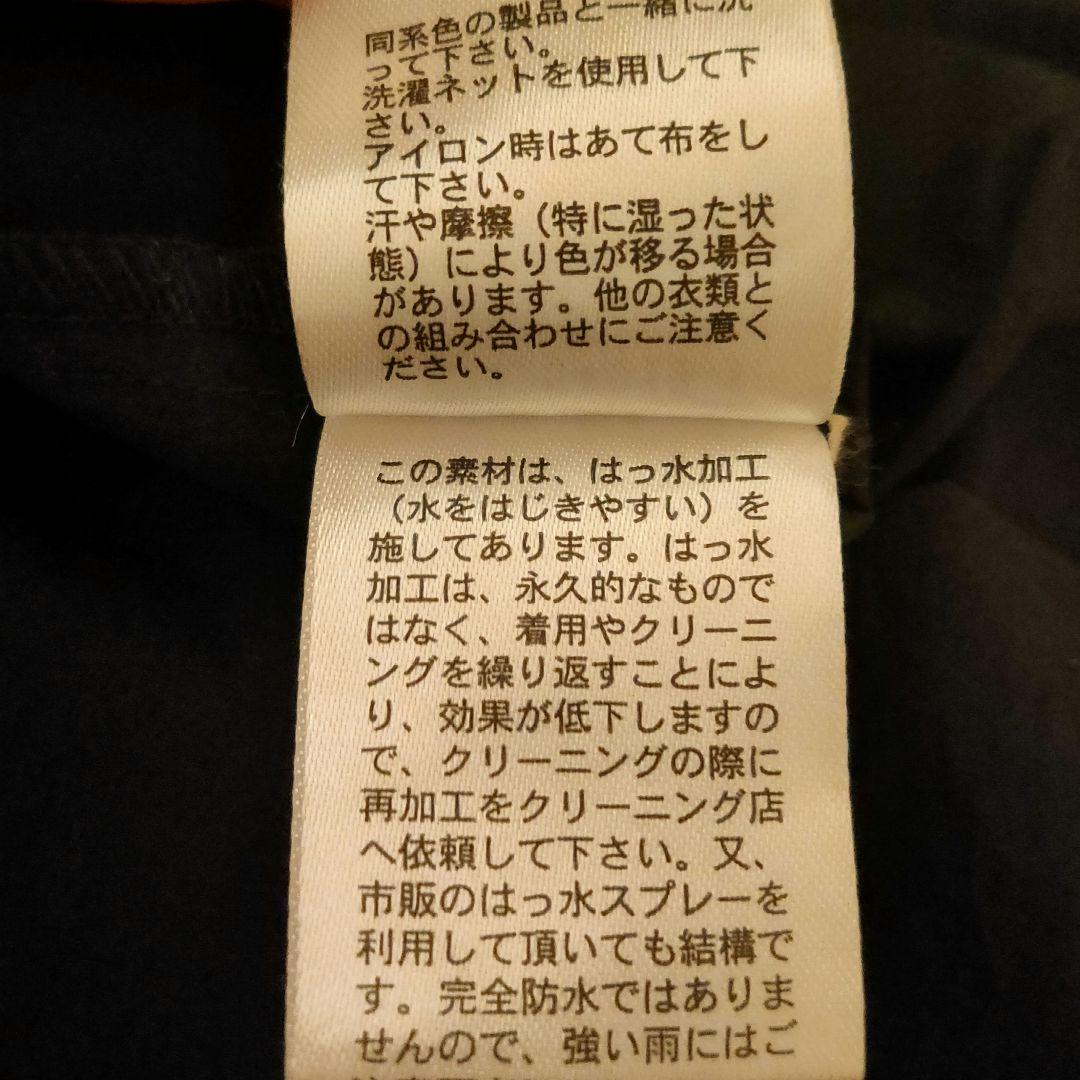 同系色の製品と一緒に洗
って下さい。
洗濯ネットを使用して下
さい。
アイロン時はあて布をし
て下さい。
汗や摩擦（特に湿った状
態）により色が移る場合
があります。他の衣類と
の組み合わせにご注意く
ださい。
この素材は、はっ水加工
（水をはじきやすい）を
施してあります。はっ水
加工は、永久的なもので
はなく、着用やクリーニ
ングを繰り返すことによ
り、効果が低下しますの
で、クリーニングの際に
再加工をクリーニング店
へ依頼して下さい。又、
市販のはっ水スプレーを
利用して頂いても結構で
す。完全防水ではありま
せんので、強い雨にはご